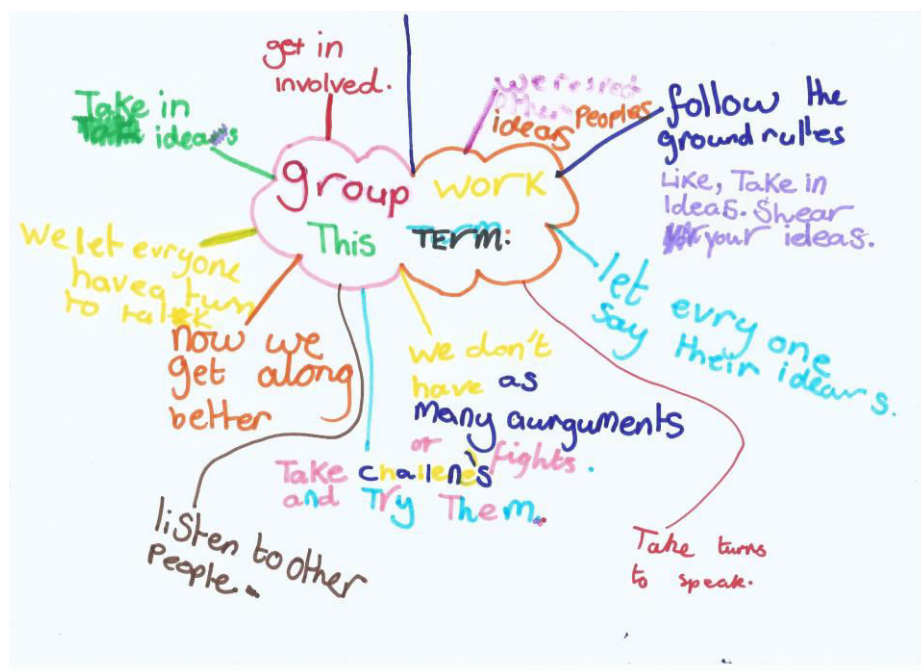 get in
involved.
Take in
ideas
group work
This TERM:
We respect
other peoples
ideas
follow the
ground rules
Like, Take in
Ideas. Shear
your ideas.
We let evryone
have a turn
to talk
now we
get along
better
we don't
have as
many aurguments
or fights.
let evry one
say their idears.
Take challene's
and Try Them.
listen to other
people.
Take turns
to speak.